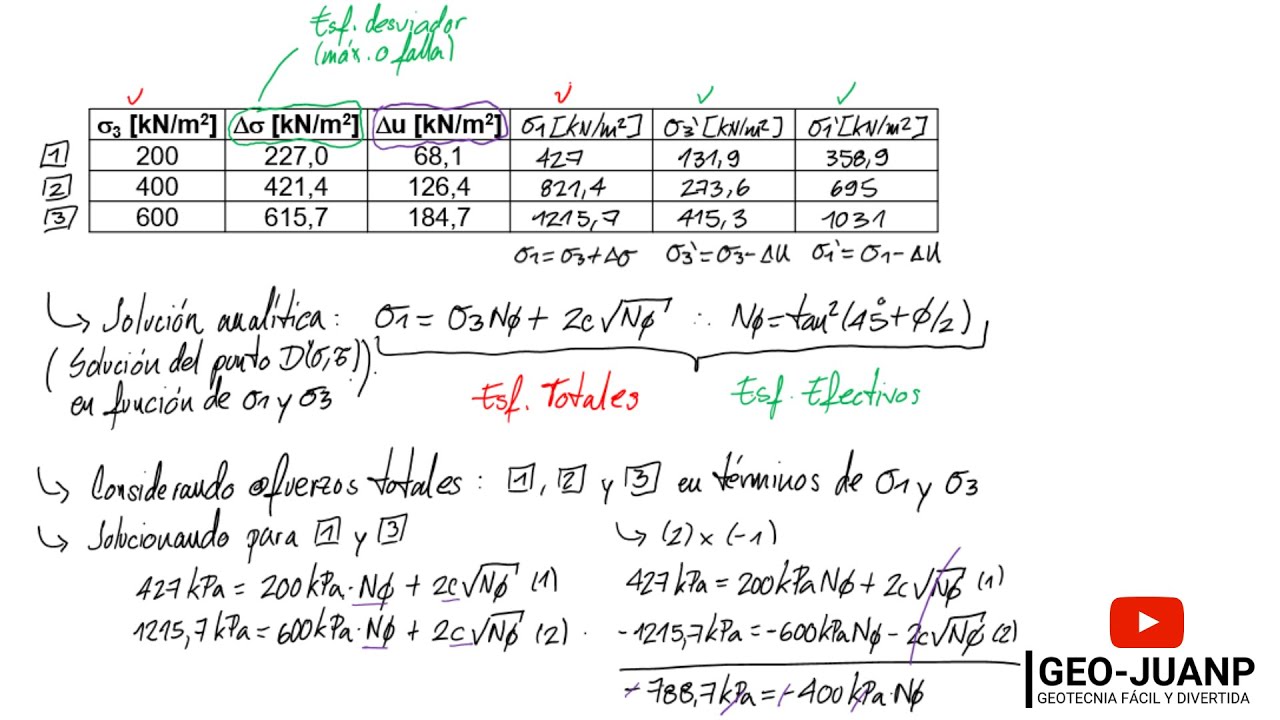 Esf. desviador
(máx. o falla)
σ3 [kN/m²] Δσ [kN/m²] Δu [kN/m²] σ1 [kN/m²] σ3' [kN/m²] σ1' [kN/m²]
1 200 227,0 68,1 427 131,9 358,9
2 400 421,4 126,4 821,4 273,6 695
3 600 615,7 184,7 1215,7 415,3 1031
σ1 = σ3 + Δσ σ3' = σ3 - Δu σ1' = σ1 - Δu
↳ Solución analítica: σ1 = σ3 Nφ + 2c√Nφ ∴ Nφ = tan²(45° + φ/2)
(Solución del punto D(σ,τ)
en función de σ1 y σ3)
Esf. Totales Esf. Efectivos
↳ Considerando esfuerzos totales: 1, 2 y 3 en términos de σ1 y σ3
↳ Solucionando para 1 y 3
427 kPa = 200 kPa·Nφ + 2c√Nφ (1)
1215,7 kPa = 600 kPa·Nφ + 2c√Nφ (2)
↳ (2) x (-1)
427 kPa = 200 kPa Nφ + 2c√Nφ (1)
-1215,7 kPa = -600 kPa Nφ - 2c√Nφ (2)
-788,7 kPa = -400 kPa·Nφ
GEO-JUANP
GEOTECNIA FÁCIL Y DIVERTIDA